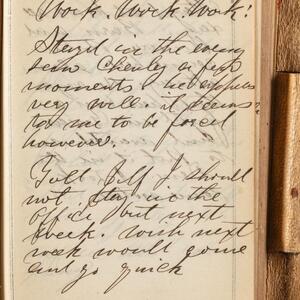 Work. Work. Work!
Stayed in the evening
seen Charley a few
moments. he appears
very well. it seems
to me to be forced
however.
Told Jeff I should
not stay in the
office but next
week. wish next
week would come
and go quick